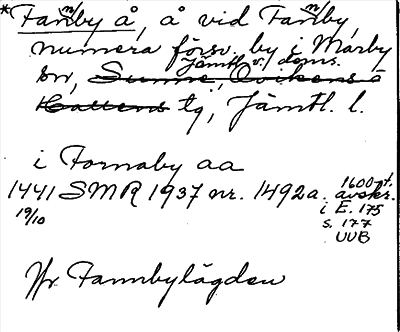 * Fannby å, å vid Fannby,
numera försv. by i Marby
sn, Sunne, Ovikens o Jämtl. v. doms.
Hallens tg, Jämtl. l.
i Fornaby aa
1441 SMR 1937 nr. 1492a. 1600-t. avskr.
19/10 i E. 175
s. 177
UUB
Jfr Fannbylägden